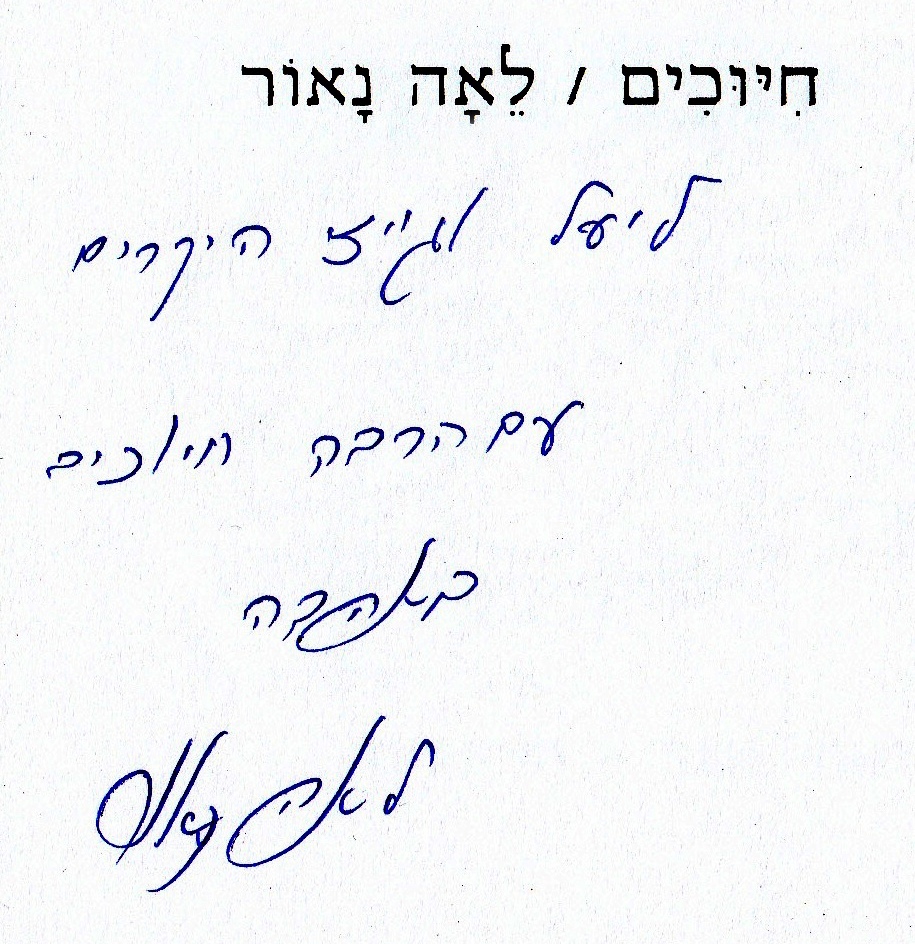 חִיּוּכִים / לֵאָה נָאוֹר
ליעל וג'יז היקרים
עם הרבה חיוכים
באהבה
לאה נאור